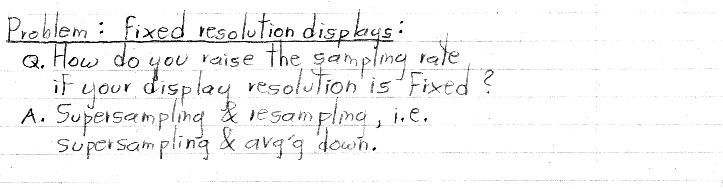 Problem: Fixed resolution displays:
Q. How do you raise the sampling rate
if your display resolution is Fixed?
A. Supersampling & resampling, i.e.
supersampling & avg'g down.